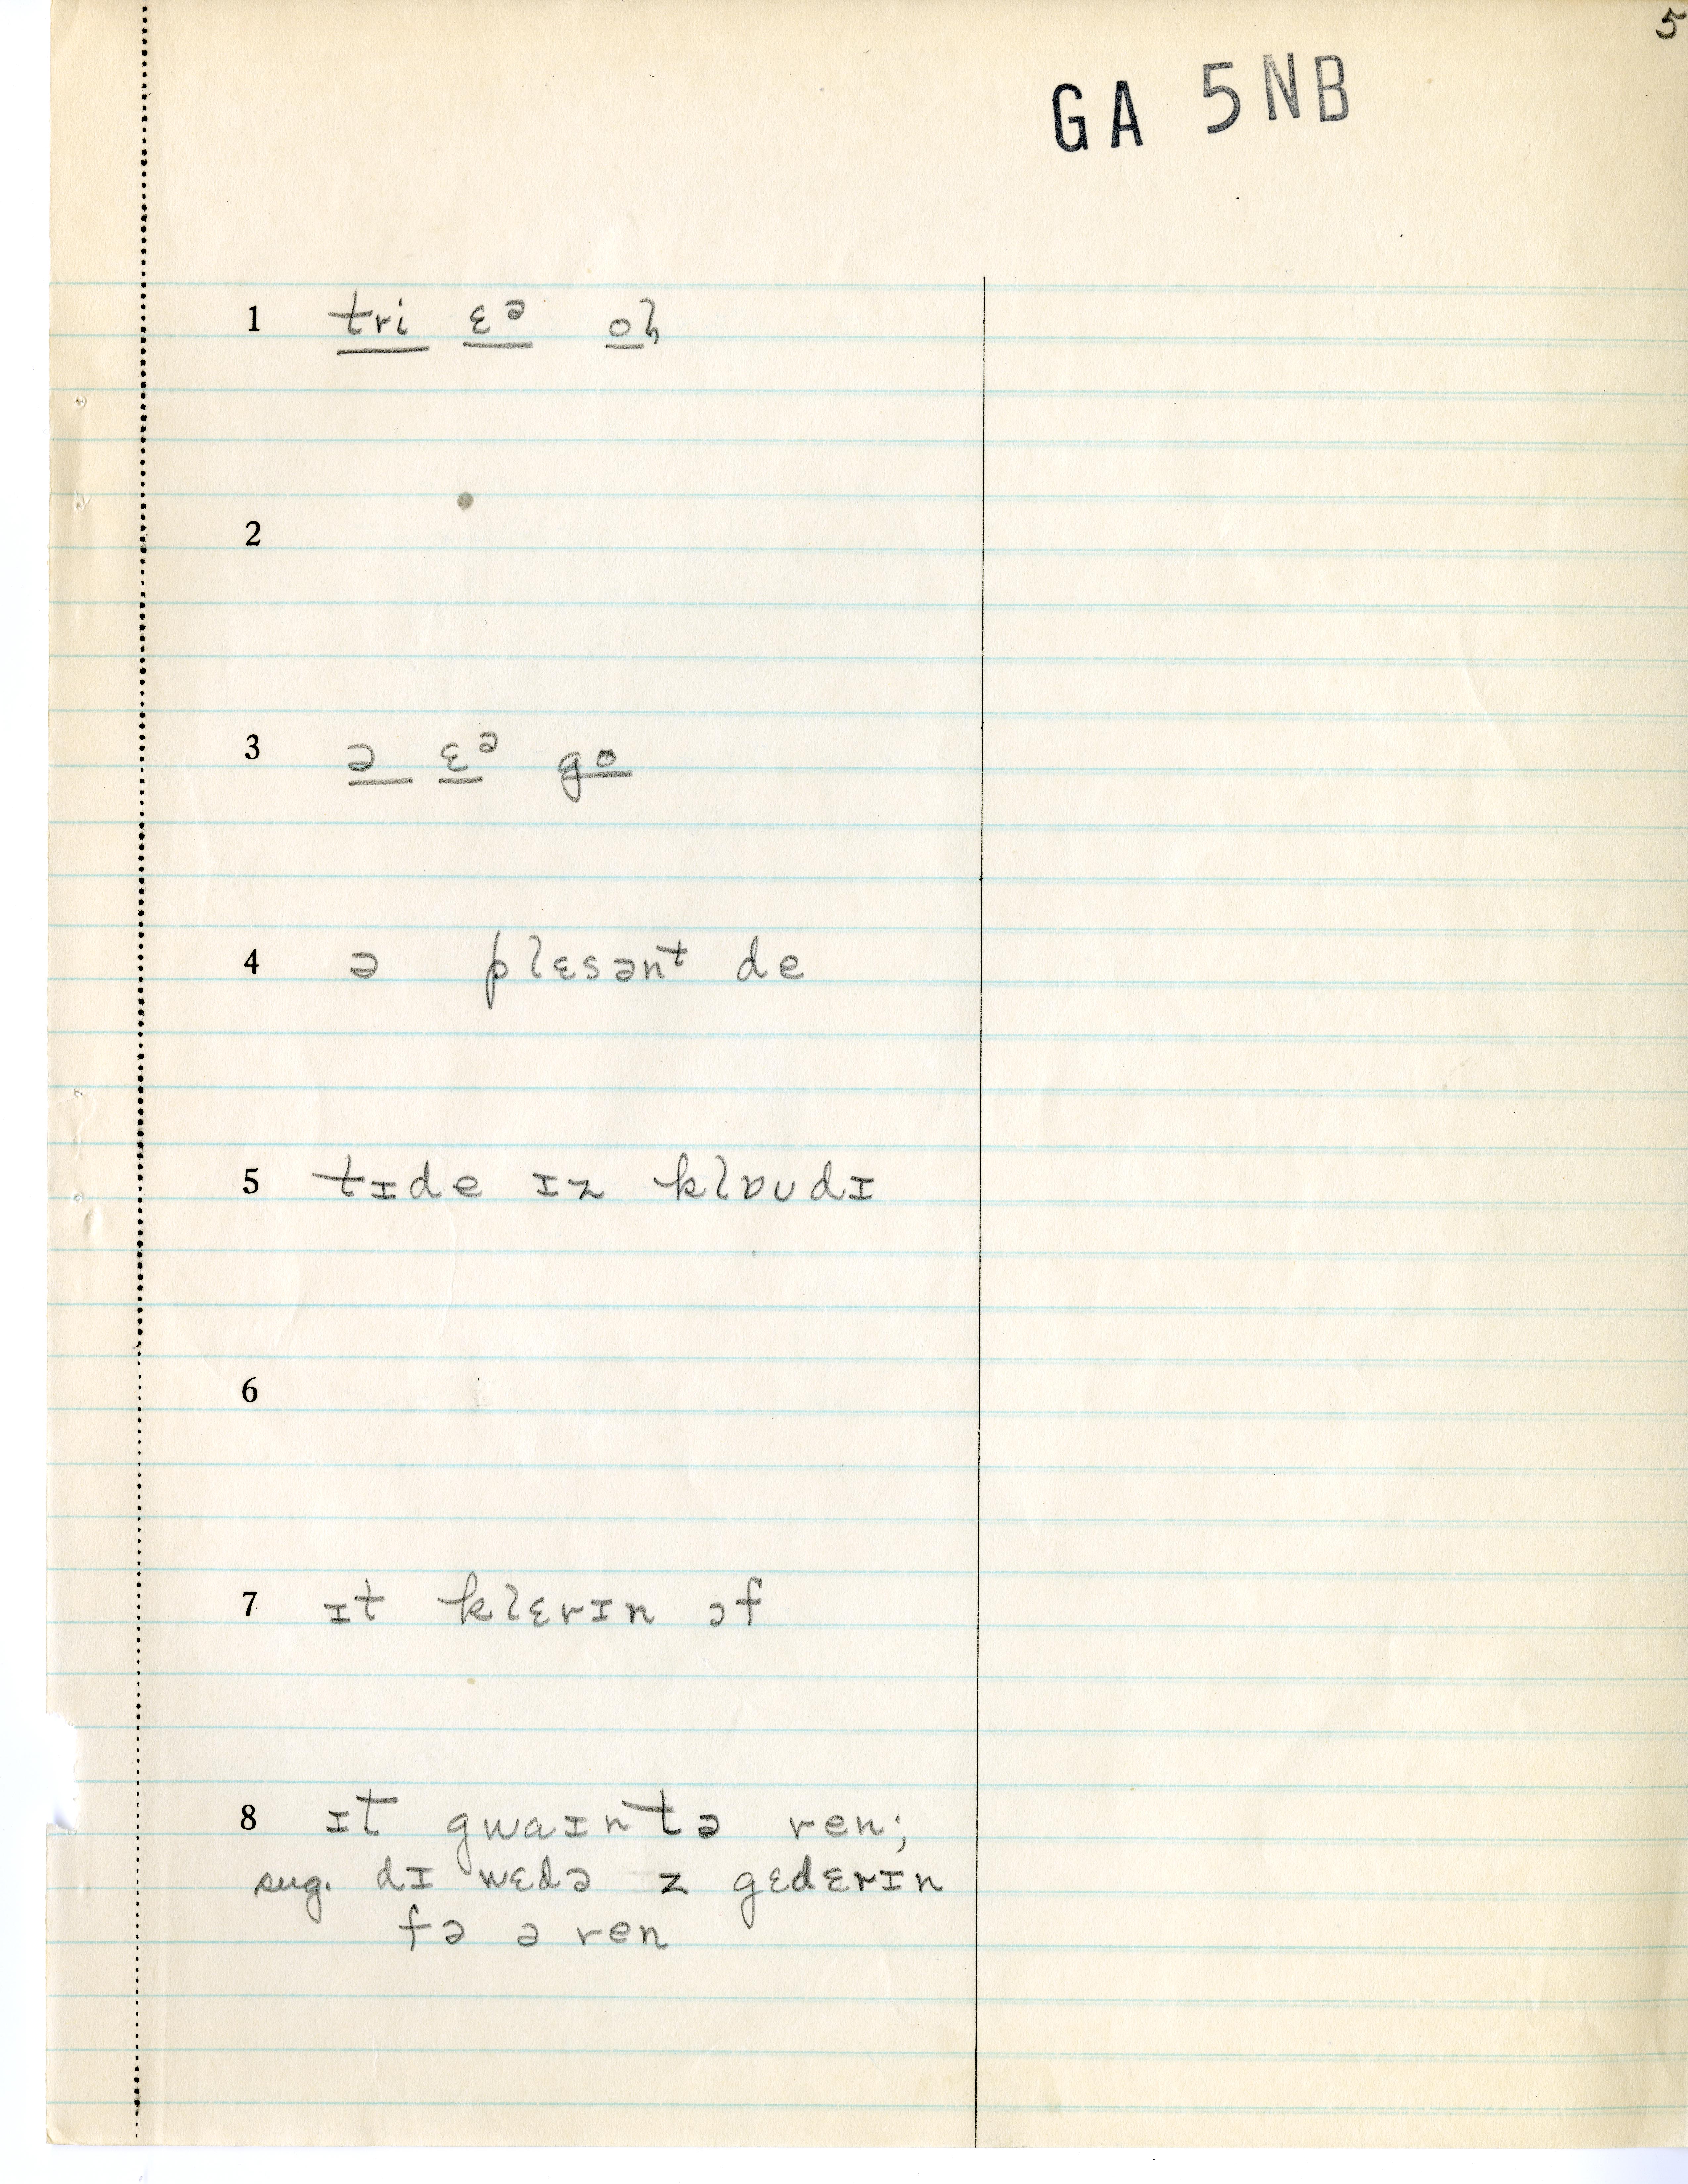 5
GA 5NB
1 tri ɛᵊ oɫ
2
3 ə ɛᵊ go
4 ə plɛsənᵗ de
5 tɪde ɪz klɒʊdɪ
6
7 ɪt klɛrɪn ɔf
8 ɪt gwaɪntə ren;
sug. dɪ wɛdə z gɛdɛrɪn
fə ə ren